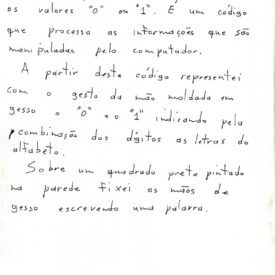 os valores "0" ou "1". É um código
que processa as informações que são
manipuladas pelo computador.
A partir deste código representei
com o gesto da mão moldado em
gesso o "0" e o "1" indicando pela
combinação dos dígitos as letras do
alfabeto.
Sobre um quadrado preto pintado
na parede fixei as mãos de
gesso escrevendo uma palavra.